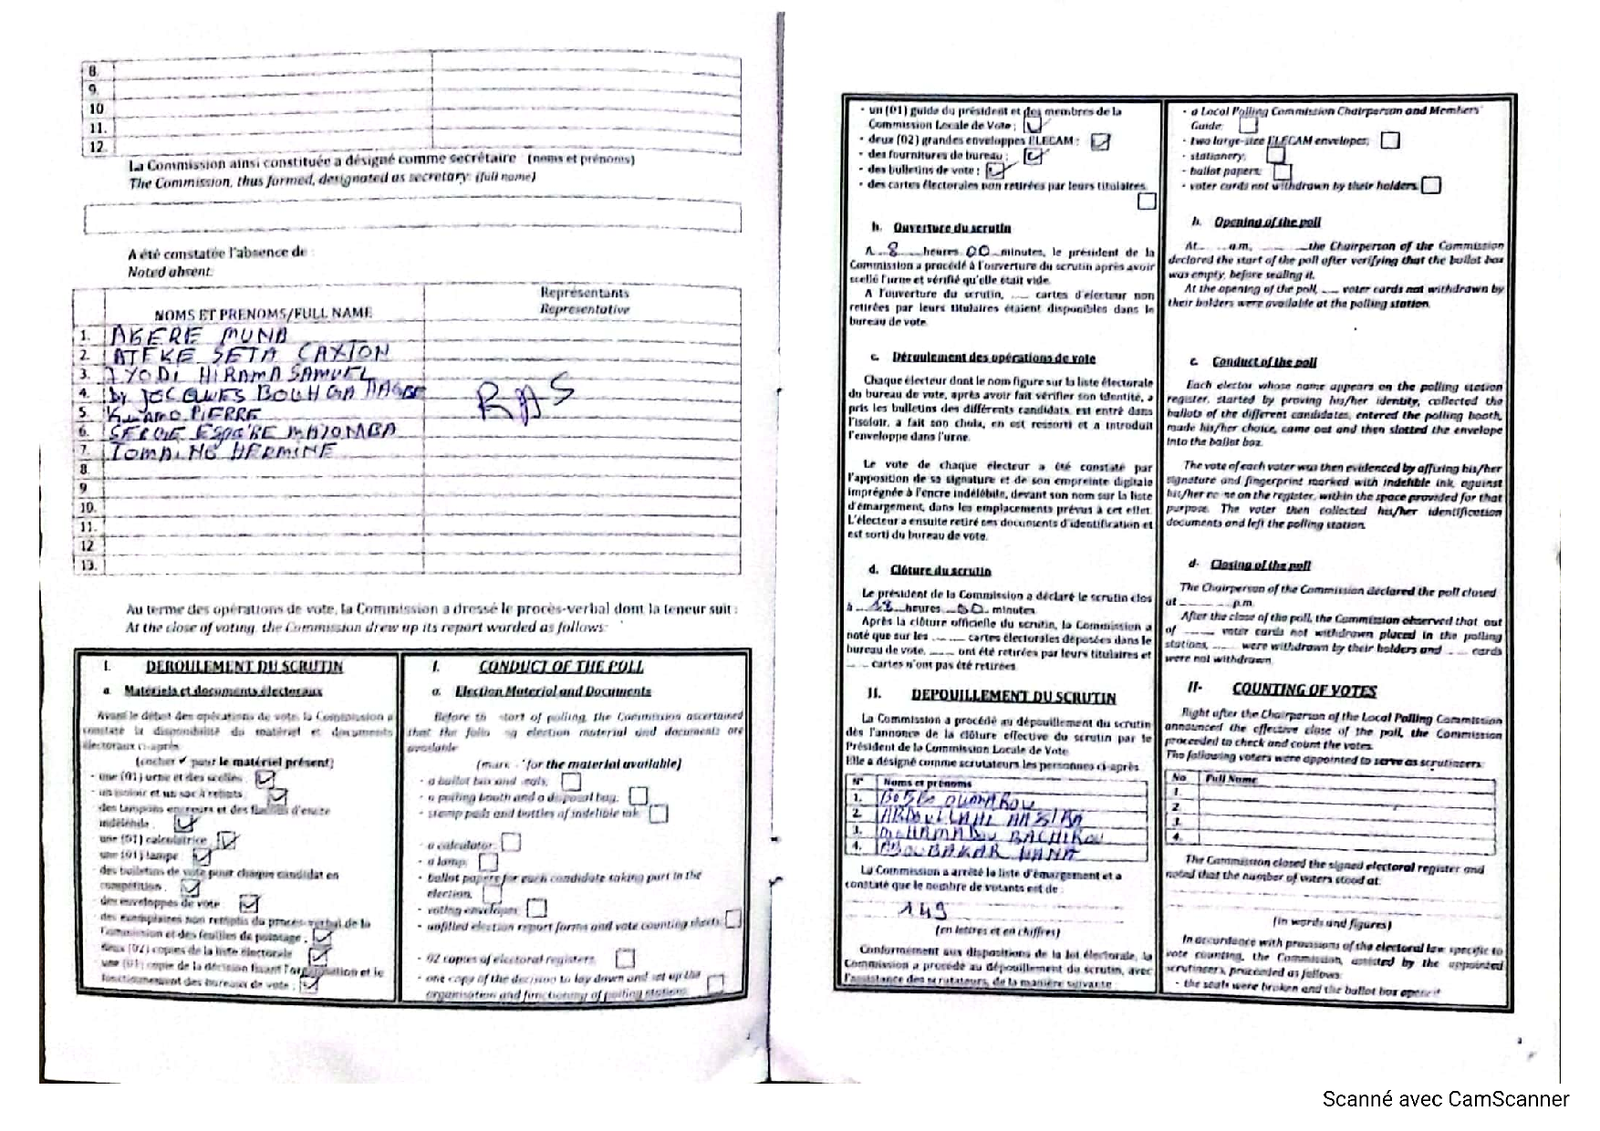 8.
9.
10
11.
12.
La Commission ainsi constituée a désigné comme secrétaire (noms et prénoms)
The Commission, thus formed, designated as secretary: (full name)
A été constatée l'absence de :
Noted absent:
NOMS ET PRENOMS/FULL NAME
Représentants
Representative
1. AKERE MUNA
2. ATEKE SETA CAXTON
3. IYODI HIRAMA SAMUEL
4. JACQUES BOUHGA HAGBE
5. KWAMO PIERRE
6. SERGE ESPOIRE MATOMBA
7. TOMAINO HERMINE
RAS
8.
9
10.
11.
12
13.
Au terme des opérations de vote, la Commission a dressé le procès-verbal dont la teneur suit :
At the close of voting, the Commission drew up its report worded as follows:
I. DEROULEMENT DU SCRUTIN
a. Matériels et documents électoraux
Avant le début des opérations de vote, la Commission a
constaté la disponibilité du matériel et documents
électoraux ci-après
(cocher ✔ pour le matériel présent)
- une (01) urne et des scellés :
- un isoloir et un sac à rebuts :
des tampons encreurs et des flacons d'encre
indélébile :
une (01) calculatrice :
une (01) lampe :
- des bulletins de vote pour chaque candidat en
compétition :
des enveloppes de vote :
des exemplaires non remplis du procès-verbal de la
Commission et des feuilles de pointage :
deux (02) copies de la liste électorale
- une (01) copie de la décision fixant l'organisation et le
fonctionnement des bureaux de vote :
I. CONDUCT OF THE POLL
a. Election Material and Documents
Before th start of polling, the Commission ascertained
that the follo ng election material and documents are
available
(mark for the material available)
- a ballot box and seals:
- a polling booth and a disposal bag:
- stamp pads and bottles of indelible ink:
- a calculator:
- a lamp:
- ballot papers for each candidate taking part in the
election.
- voting envelopes:
- unfilled election report forms and vote counting sheets
- 02 copies of electoral registers.
- one copy of the decision to lay down and set up the
organisation and functioning of polling stations:
- un (01) guide du président et des membres de la
Commission Locale de Vote :
- deux (02) grandes enveloppes ELECAM :
- des fournitures de bureau :
- des bulletins de vote :
- des cartes électorales non retirées par leurs titulaires.
b. Ouverture du scrutin
A 8 heures 00 minutes, le président de la
Commission a procédé à l'ouverture du scrutin après avoir
scellé l'urne et vérifié qu'elle était vide.
A l'ouverture du scrutin, ..... cartes d'électeur non
retirées par leurs titulaires étaient disponibles dans le
bureau de vote.
c. Déroulement des opérations de vote
Chaque électeur dont le nom figure sur la liste électorale
du bureau de vote, après avoir fait vérifier son identité, a
pris les bulletins des différents candidats, est entré dans
l'isoloir, a fait son choix, en est ressorti et a introduit
l'enveloppe dans l'urne.
Le vote de chaque électeur a été constaté par
l'apposition de sa signature et de son empreinte digitale
imprégnée à l'encre indélébile, devant son nom sur la liste
d'émargement, dans les emplacements prévus à cet effet.
L'électeur a ensuite retiré ses documents d'identification et
est sorti du bureau de vote.
d. Clôture du scrutin
Le président de la Commission a déclaré le scrutin clos
à 18 heures 00 minutes
Après la clôture officielle du scrutin, la Commission a
noté que sur les ........ cartes électorales déposées dans le
bureau de vote, ....... ont été retirées par leurs titulaires et
..... cartes n'ont pas été retirées.
II. DEPOUILLEMENT DU SCRUTIN
La Commission a procédé au dépouillement du scrutin
dès l'annonce de la clôture effective du scrutin par le
Président de la Commission Locale de Vote
Elle a désigné comme scrutateurs les personnes ci-après
N° Noms et prénoms
1. BOBBO OUMAROU
2. ABDOULLAHI HASSIBA
3. MOHAMADOU BACHIROU
4. ABOUBAKAR
La Commission a arrêté la liste d'émargement et a
constaté que le nombre de votants est de :
149
(en lettres et en chiffres)
Conformément aux dispositions de la loi électorale, la
Commission a procédé au dépouillement du scrutin, avec
l'assistance des scrutateurs, de la manière suivante
- a Local Polling Commission Chairperson and Members'
Guide:
- two large-size ELECAM envelopes:
- stationery:
- ballot papers:
- voter cards not withdrawn by their holders.
b. Opening of the poll
At..... a.m, ........the Chairperson of the Commission
declared the start of the poll after verifying that the ballot box
was empty, before sealing it.
At the opening of the poll, ..... voter cards not withdrawn by
their holders were available at the polling station.
c. Conduct of the poll
Each elector whose name appears on the polling station
register, started by proving his/her identity, collected the
ballots of the different candidates, entered the polling booth,
made his/her choice, came out and then slotted the envelope
into the ballot box.
The vote of each voter was then evidenced by affixing his/her
signature and fingerprint marked with indelible ink, against
his/her na se on the register, within the space provided for that
purpose. The voter then collected his/her identification
documents and left the polling station.
d- Closing of the poll
The Chairperson of the Commission declared the poll closed
at .......... p.m.
After the close of the poll, the Commission observed that out
of ........ voter cards not withdrawn placed in the polling
stations, ....... were withdrawn by their holders and ...... cards
were not withdrawn.
II- COUNTING OF VOTES
Right after the Chairperson of the Local Polling Commission
announced the effective close of the poll, the Commission
proceeded to check and count the votes.
The following voters were appointed to serve as scrutineers:
No Full Name
1.
2.
3.
4.
The Commission closed the signed electoral register and
noted that the number of voters stood at:
(in words and figures)
In accordance with provisions of the electoral law specific to
vote counting, the Commission, assisted by the appointed
scrutineers, proceeded as follows:
- the seals were broken and the ballot box opened
Scanné avec CamScanner